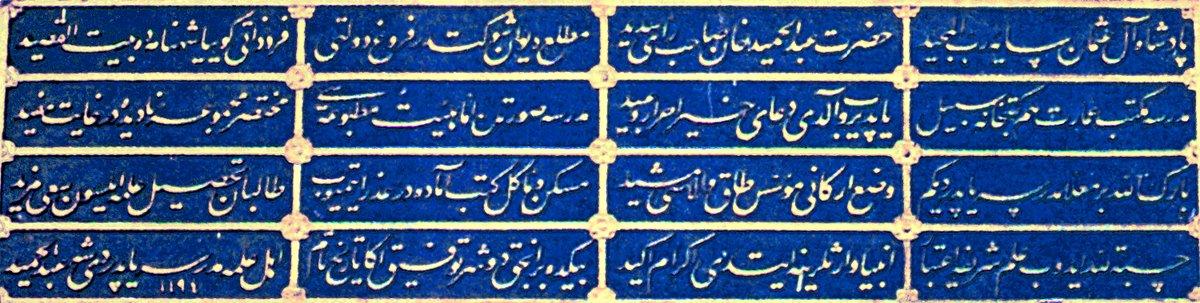 پادشاه آل عثمان سایه رب المجید
حضرت عبدالحمید خان صاحب رای سدید
مطلع دیوان شوکتدر فروغ دولتی
فرد ذاتی گویا شهنامه ده بیت القصید
مدرسه مکتب عمارت هم کتبخانه سبیل
یاپدیروب آلدی دعای خیر احرار و عبید
مدرسه صورتدن اما بیت مطبوعه سی
مختصر مجموعه نادیده در غایت مفید
بارک الله بر معلا مدرسه یاپدی کیم
وضع ارکانی مؤسس طاق والاسی مشید
مسکن و مأکل کتب آماده در عذر ایتمیوب
طالبان تحصیل علم ایلیسون سعی مزید
ایدوب علم شریفه اعتبار
انبیا وارثلرینه ایتدی اکرام اکید
بیکده بر انجق دوشر توفیق اکا تاریخ تام
اهل علمه مدرسه یاپدردی شه عبدالحمید
١١٩٤